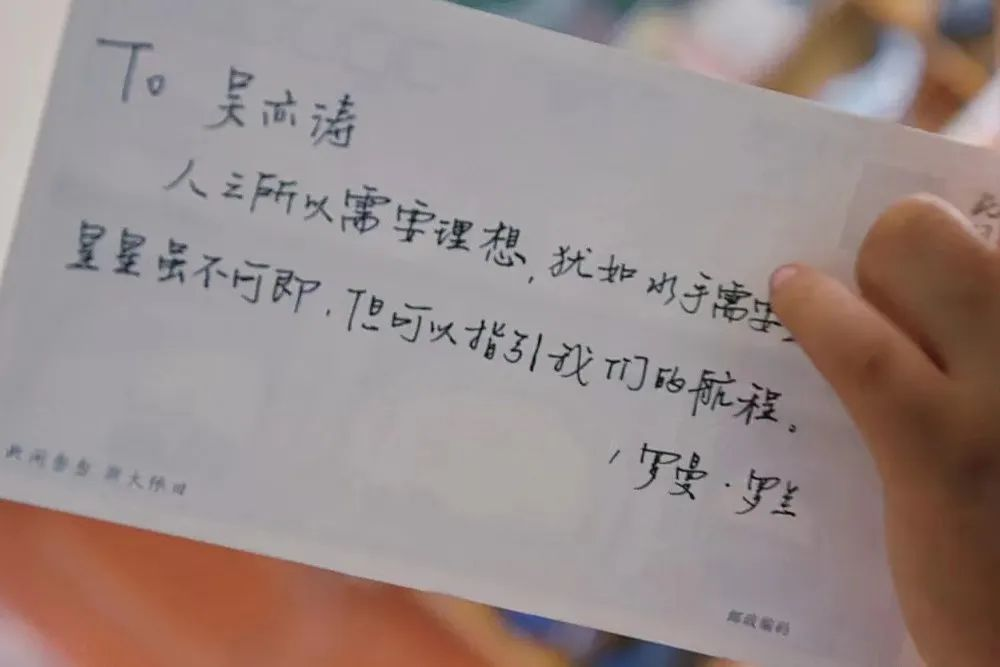 To 吴亦涛
人之所以需要理想,犹如水手需要
星星虽不可即,但可以指引我们的航程。
罗曼·罗兰
邮政编码